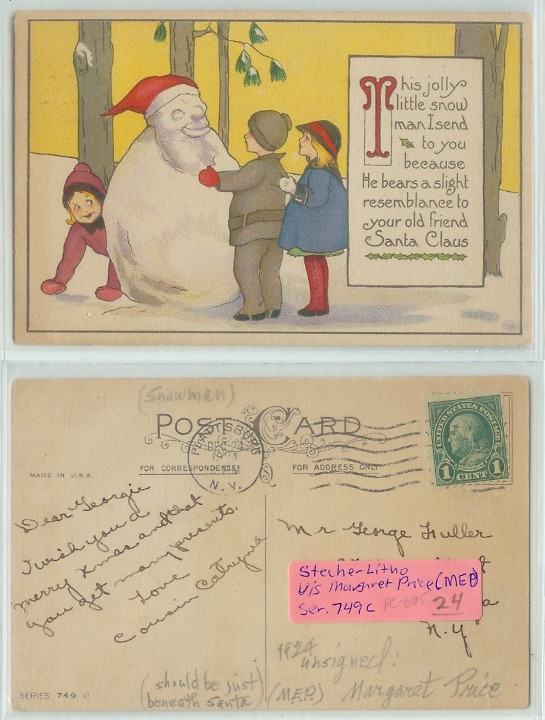 This jolly
little snow
man I send
to you
because
He bears a slight
resemblance to
your old friend
Santa Claus
(snowman)
POST CARD
PLATTSBURG
1924
N.Y.
FOR CORRESPONDENCE
FOR ADDRESS ONLY
UNITED STATES POSTAGE
1 CENT 1
MADE IN U.S.A.
Dear Georgie
I wish you a
merry xmas and that
you get many presents.
Love
Cousin
Mr George Fuller
N.Y
Stecher-Litho
U/S Margaret Price (MEP)
Ser. 749 c PC-605 24
1924
unsigned:
(M.E.P.) Margaret Price
(should be just
beneath santa)
SERIES 749 C